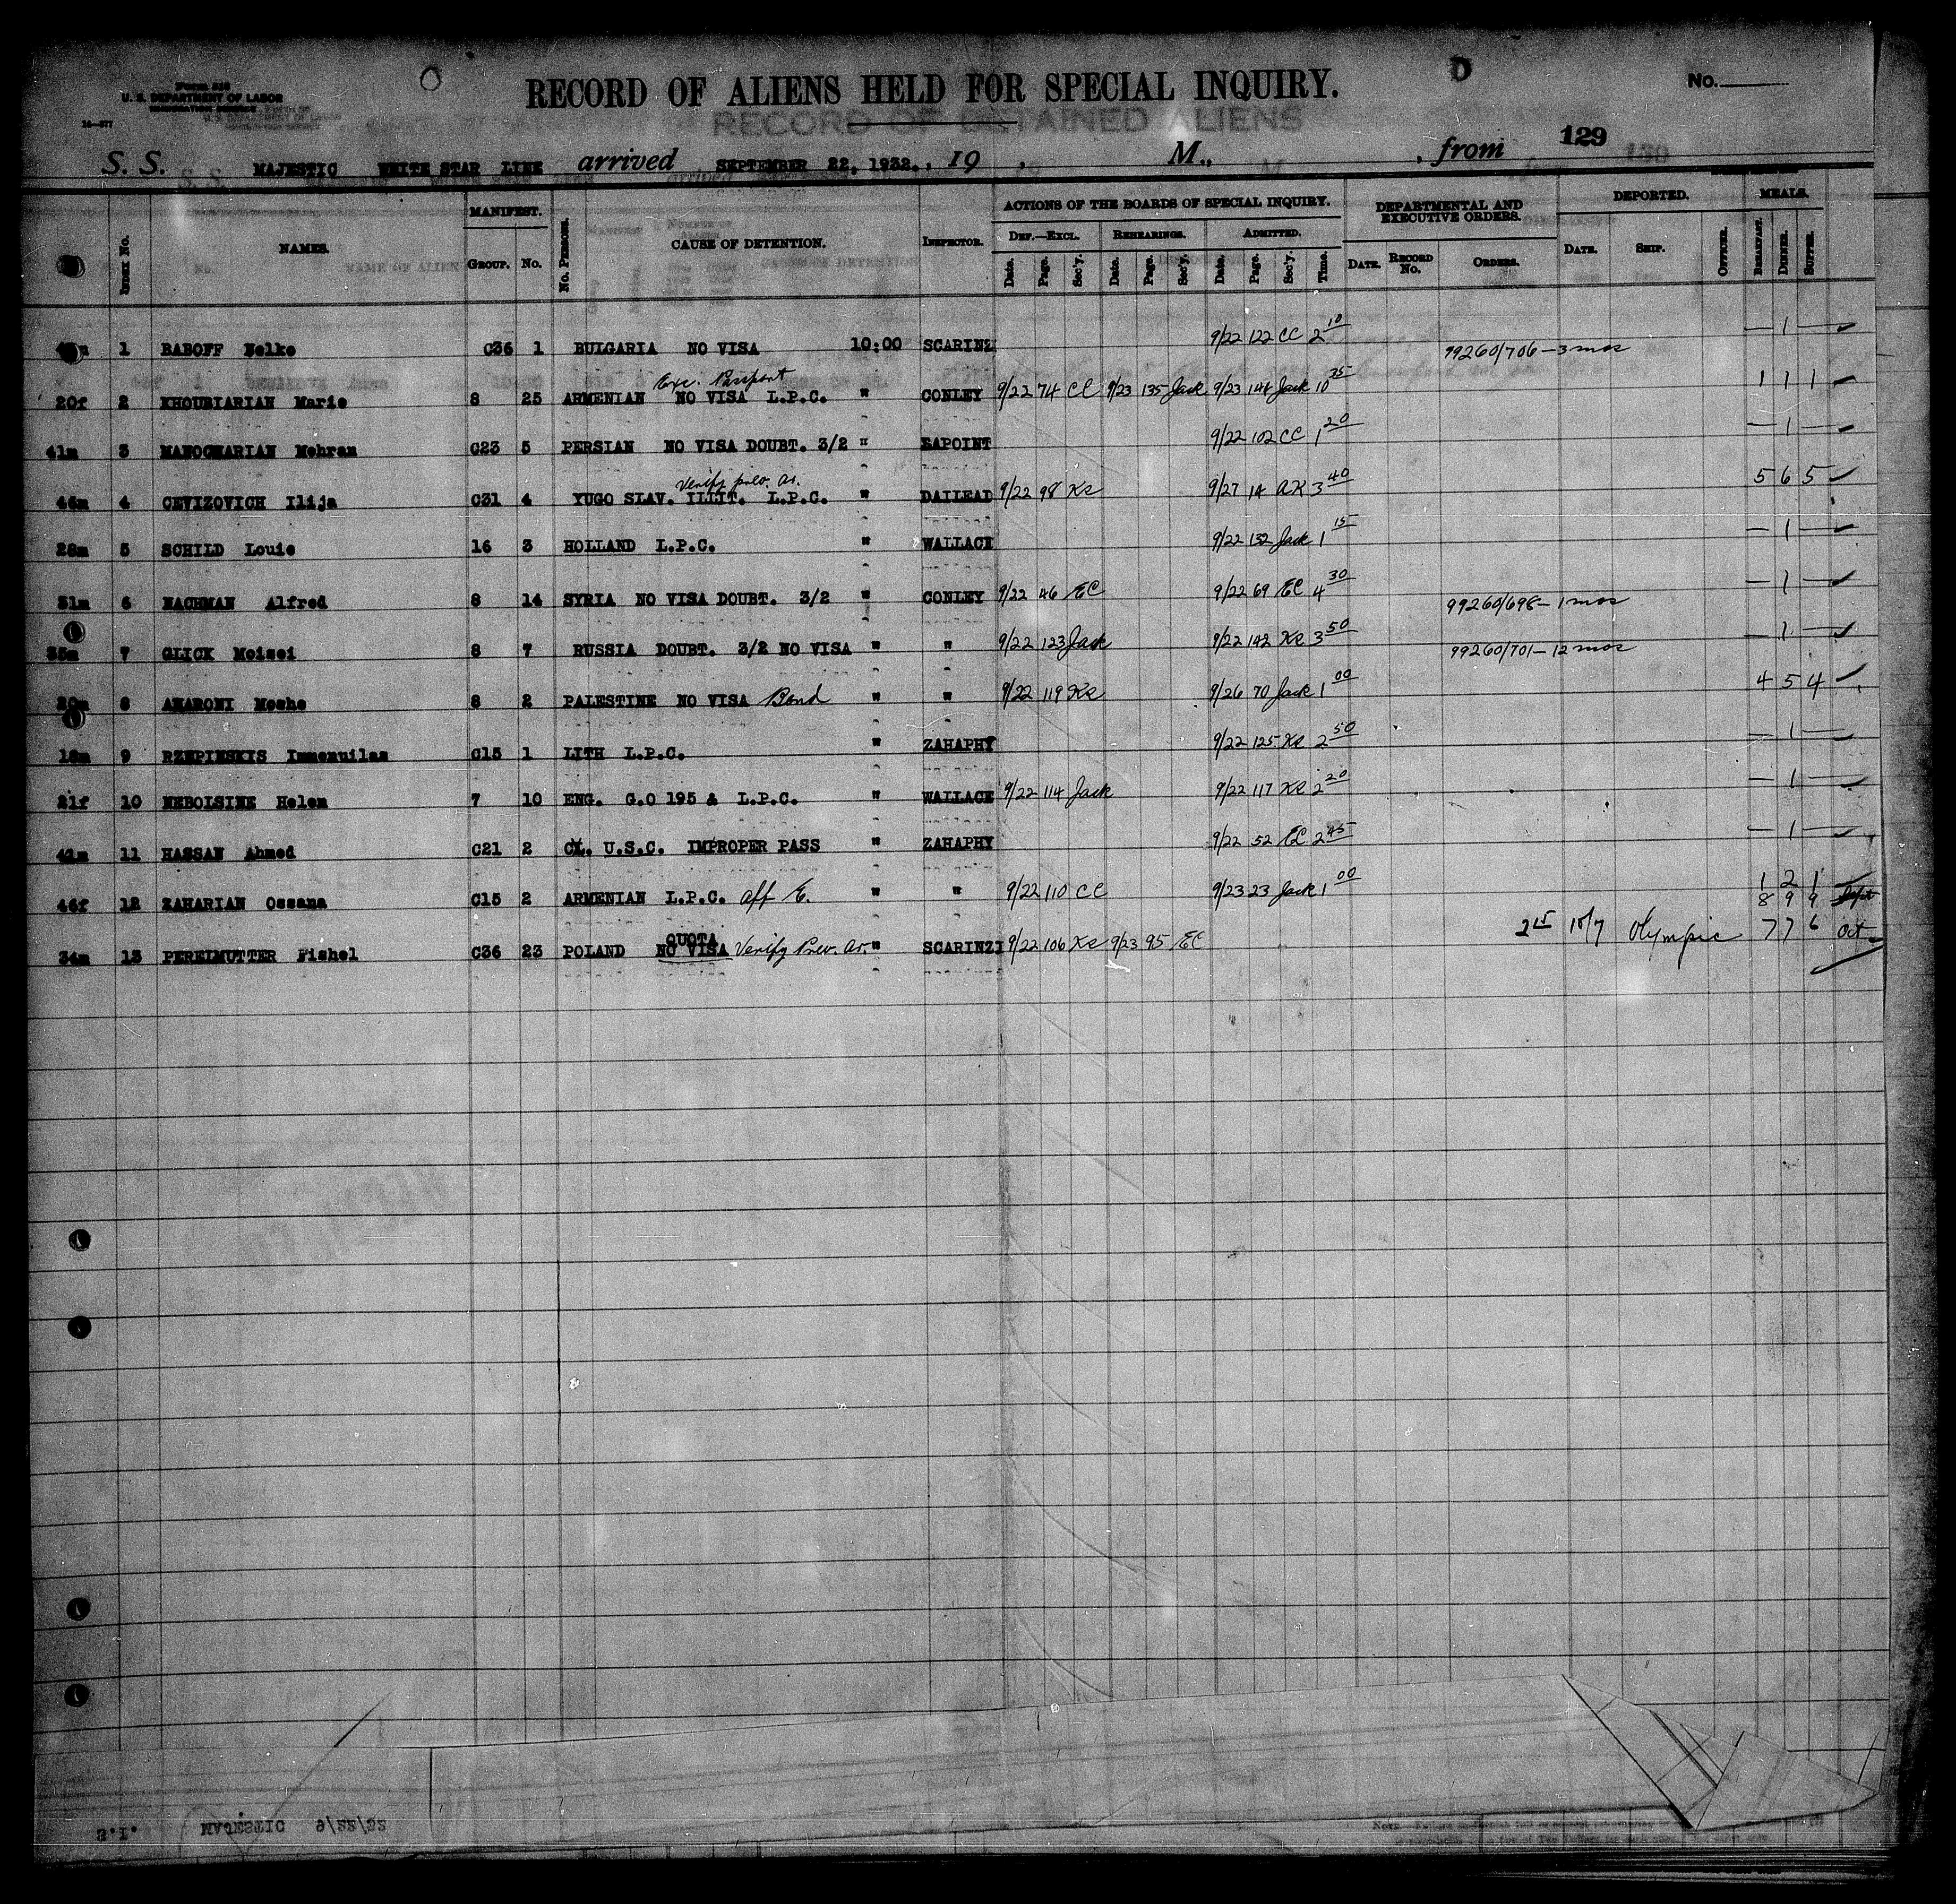 Form 518
U. S. DEPARTMENT OF LABOR
IMMIGRATION SERVICE
14—577
RECORD OF ALIENS HELD FOR SPECIAL INQUIRY.
RECORD OF DETAINED ALIENS
D
No.
129
S. S. MAJESTIC WHITE STAR LINE arrived SEPTEMBER 22, 1932. , 19 , M., , from
INDEX No. NAMES. MANIFEST. GROUP. No. No. PERSONS. CAUSE OF DETENTION. INSPECTOR. ACTIONS OF THE BOARDS OF SPECIAL INQUIRY. DEF.—EXCL. Date. Page. Sec'y. REHEARINGS. Date. Page. Sec'y. ADMITTED. Date. Page. Sec'y. Time. DEPARTMENTAL AND EXECUTIVE ORDERS. DATE. RECORD No. ORDERS. DEPORTED. DATE. SHIP. OFFICER. MEALS. BREAKFAST. DINNER. SUPPER.
1 BABOFF Nelko C36 1 BULGARIA NO VISA 10:00 SCARINZI 9/22 122 CC 2 10 99260/706 - 3 mos — 1 —
Exc. Passport
20f 2 KHOUBIARIAN Marie 8 25 ARMENIAN NO VISA L.P.C. " CONLEY 9/22 74 CC 9/23 135 Jack 9/23 144 Jack 10 35 1 1 1
41m 3 MANOCHARIAN Mehran C23 5 PERSIAN NO VISA DOUBT. 3/2 " LAPOINT 9/22 102 CC 1 20 — 1 —
Verify prev. ar.
44m 4 CEVIZOVICH Ilija C31 4 YUGO SLAV. ILLIT. L.P.C. " DAILEAD 9/22 98 KS 9/27 14 AK 3 40 5 6 5
28m 5 SCHILD Louie 16 3 HOLLAND L.P.C. " WALLACE 9/22 132 Jack 1 15 — 1 —
31m 6 NACHMAN Alfred 8 14 SYRIA NO VISA DOUBT. 3/2 " CONLEY 9/22 46 EC 9/22 69 EC 4 30 99260/698 - 1 mos — 1 —
35m 7 GLICK Moisei 8 7 RUSSIA DOUBT. 3/2 NO VISA " " 9/22 123 Jack 9/22 142 KS 3 50 99260/701 - 12 mos — 1 —
8 AHARONI Moshe 8 2 PALESTINE NO VISA Bond " " 9/22 119 KS 9/26 70 Jack 1 00 4 5 4
18m 9 RZEPINSKIS Immenuilas C15 1 LITH L.P.C. " ZAHAPHY 9/22 125 KS 2 50 — 1 —
21f 10 NEBOLSINE Helen 7 10 ENG. G.O 195 & L.P.C. " WALLACE 9/22 114 Jack 9/22 117 KS 2 20 — 1 —
41m 11 HASSAN Ahmed C21 2 CL. U.S.C. IMPROPER PASS " ZAHAPHY 9/22 52 EC 2 45 — 1 —
46f 12 ZAHARIAN Ossana C15 2 ARMENIAN L.P.C. aff E. " " 9/22 110 CC 9/23 23 Jack 1 00 1 2 1
8 9 9 Sept
QUOTA
34m 13 PERELMUTTER Fishel C36 23 POLAND NO VISA Verify Prev. ar. " SCARINZI 9/22 106 KS 9/23 95 EC 2 15 10/7 Olympic 7 7 6 Oct
S.I. MAJESTIC 9/22/32